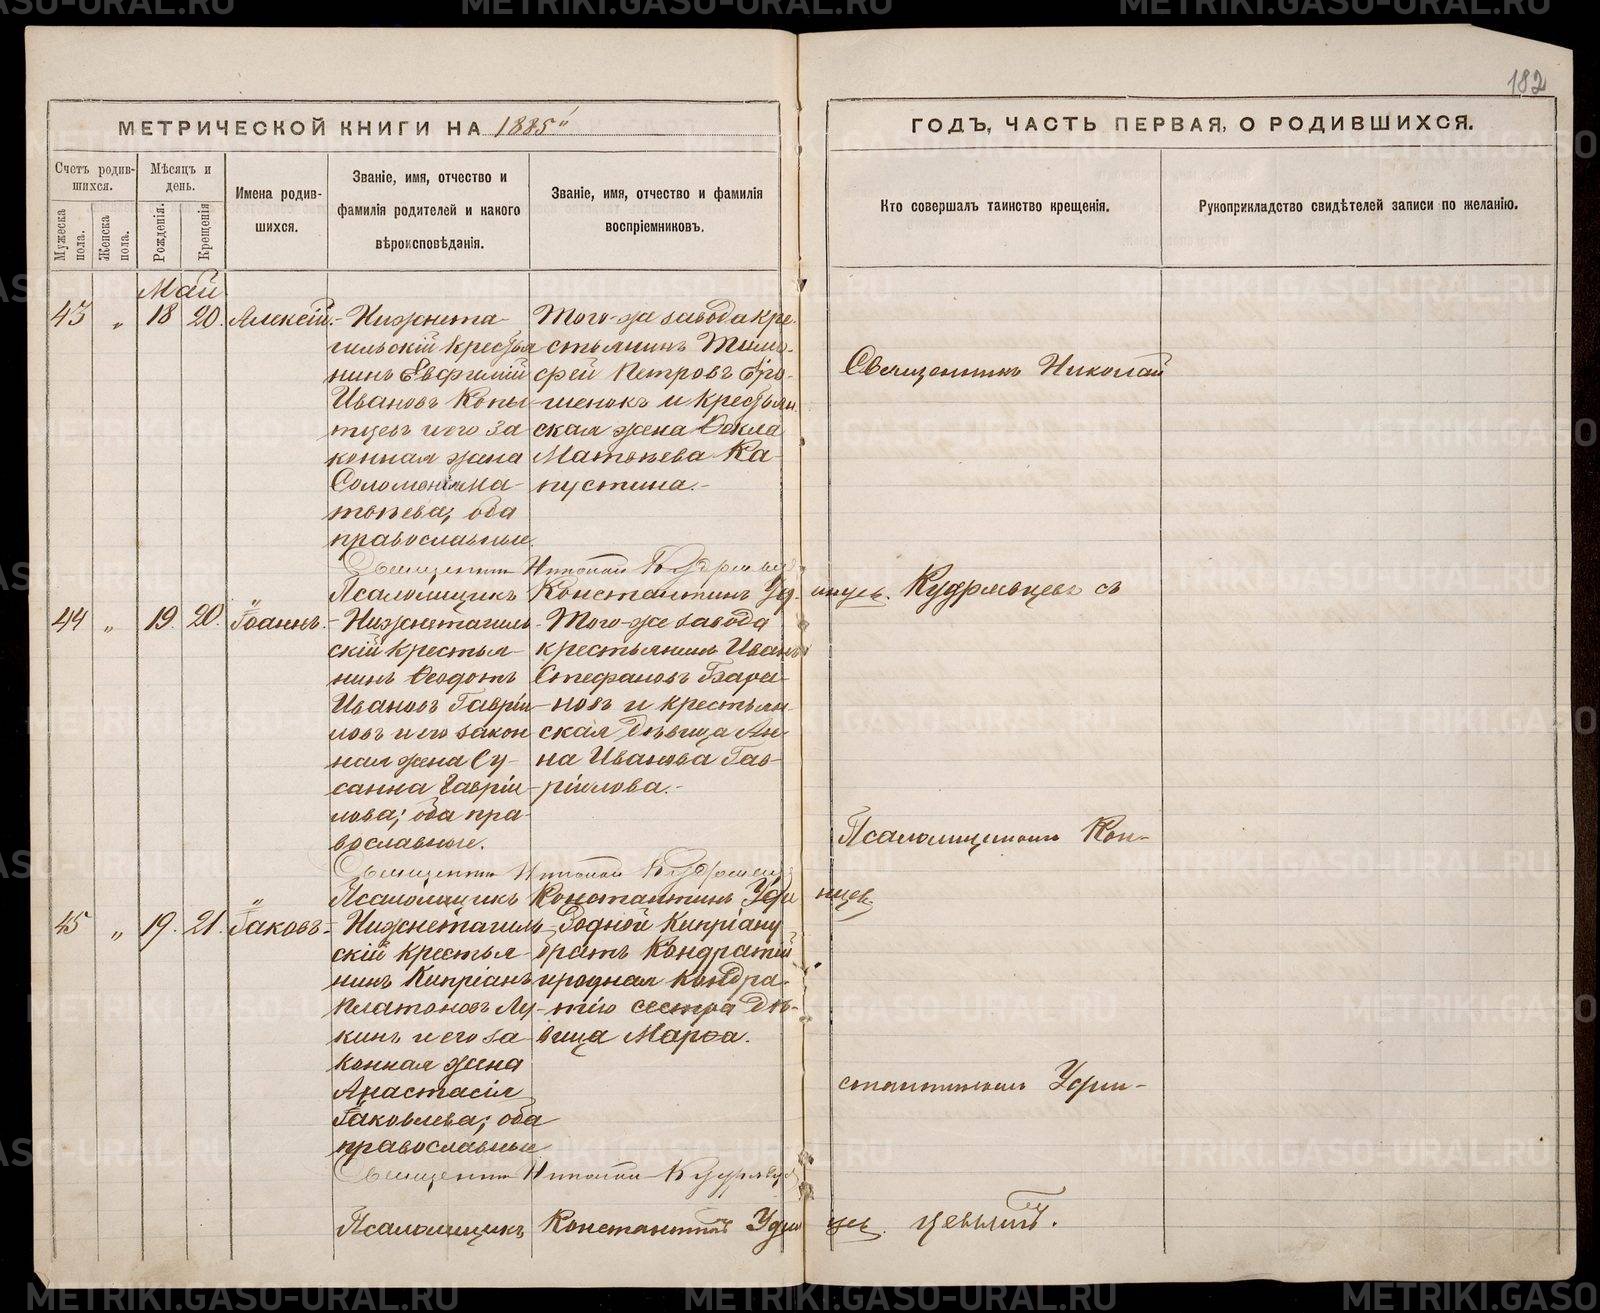 182
МЕТРИЧЕСКОЙ КНИГИ НА 1885
ГОДЪ, ЧАСТЬ ПЕРВАЯ, О РОДИВШИХСЯ.
Счетъ родив-
шихся.
Мужеска пола.
Женска пола.
Мѣсяцъ и
день.
Рожденія.
Крещенія
Имена родив-
шихся.
Званіе, имя, отчество и
фамилія родителей и какого
вѣроисповѣданія.
Званіе, имя, отчество и фамилія
воспріемниковъ.
Кто совершалъ таинство крещенія.
Рукоприкладство свидѣтелей записи по желанію.
Май
43 „ 18 20. Алексій.
Нижнета-
гильскій крестья
нинъ Евфимій
Ивановъ Копы-
тцевъ и его за
конная жена
Соломонія Ма-
твѣева; оба
православные.
Того-же завода кре-
стьянинъ Тимо-
фей Петровъ
и крестьян
ская жена Ѳекла
Матвѣева Ка-
пустина.-
Священникъ Николай
Священникъ Николай Кудрявцевъ
Псаломщикъ Константинъ Удинцев.
Кудрявцевъ съ
44 „ 19. 20. Іоаннъ.
Нижнетагиль-
скій крестья-
нинъ Ѳеодотъ
Ивановъ Гаврии-
ловъ и его закон
ная жена Су-
санна Гавріи-
лова; оба пра-
вославные.
Того-же завода
крестьянинъ Иванъ
Стефановъ Бара-
новъ и крестьян
ская дѣвица Ан-
на Иванова Гав-
ріилова.-
Псаломщикомъ Кон-
Священникъ Николай Кудрявцев
Псаломщикъ Константинъ Удинцев.
45 „ 19. 21. Іаковъ
Нижнетагиль-
скій крестья-
нинъ Кипріанъ
Платоновъ Лу-
кинъ и его за-
конная жена
Анастасія
Іаковлева; оба
православные
Родной Кипріану
братъ Кондратій
и родная Кондра-
тію сестра дѣ-
вица Марѳа.
стантиномъ Удин-
Священникъ Николай Кудрявцев
Псаломщикъ Константинъ Удинцев.
цевымъ.
METRIKI.GASO-URAL.RU